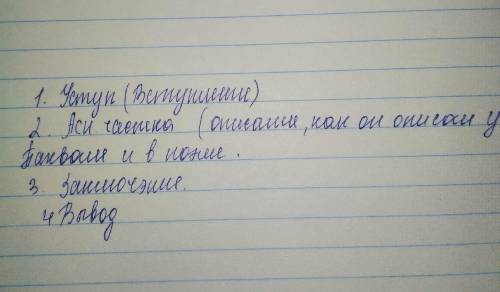 1. Уступ (Вступление)
2. Асн частка (описание, как он описан у
Пахвале и в поэме.
3. Заключэние.
4 Вывод